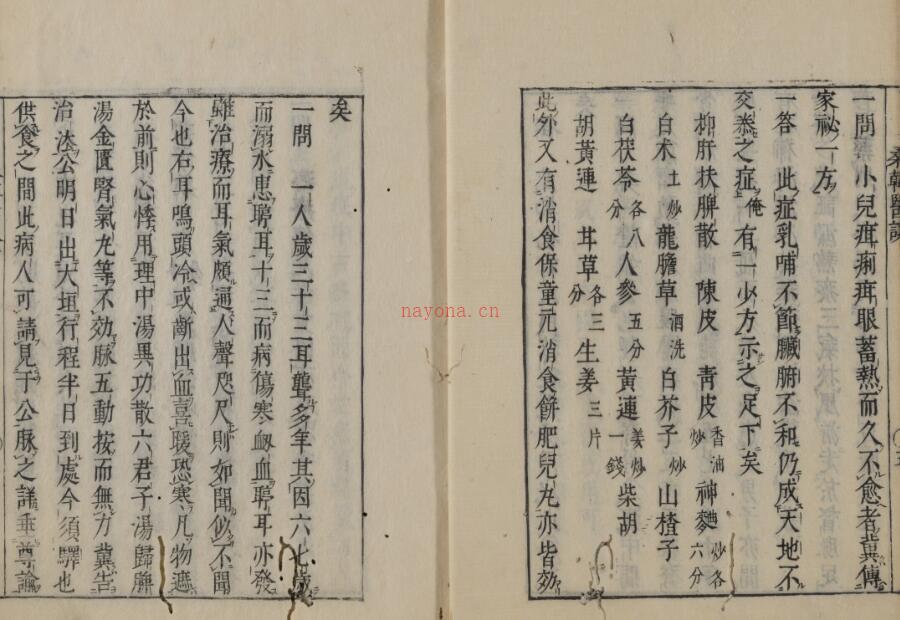 桑韓醫談
一問小兒疳痢疳眼蓄熱而久不愈者冀傳
家祕一方
一答 此症乳哺不節臟腑不和仍成天地不
交泰之症俺有一少方示之足下矣
抑肝扶脾散 陳皮 青皮香油炒 神麯炒各六分
白朮土炒 龍膽草酒洗 白芥子炒 山楂子
白茯苓各八分 人參五分 黃連姜炒一錢 柴胡
胡黃連 甘草各三分 生姜三片
此外又有消食保童元消食餅肥兒丸亦皆効
矣
一問 一人歲三十三耳聾多年其因六七歲
而溺水患聤耳十三而病傷寒衂血聤耳亦發
雖治療而耳氣頗通人聲咫尺則如聞似不聞
今也右耳鳴頭冷或齗出血喜暖恐寒凡物遮
於前則心悸用理中湯異功散六君子湯歸脾
湯金匱腎氣丸等不効脉五動按而無方冀告
治法公明日出大垣行程半日到處今須驛也
供食之間此病人可請見于公脉之詳垂尊諭
nayona.cn